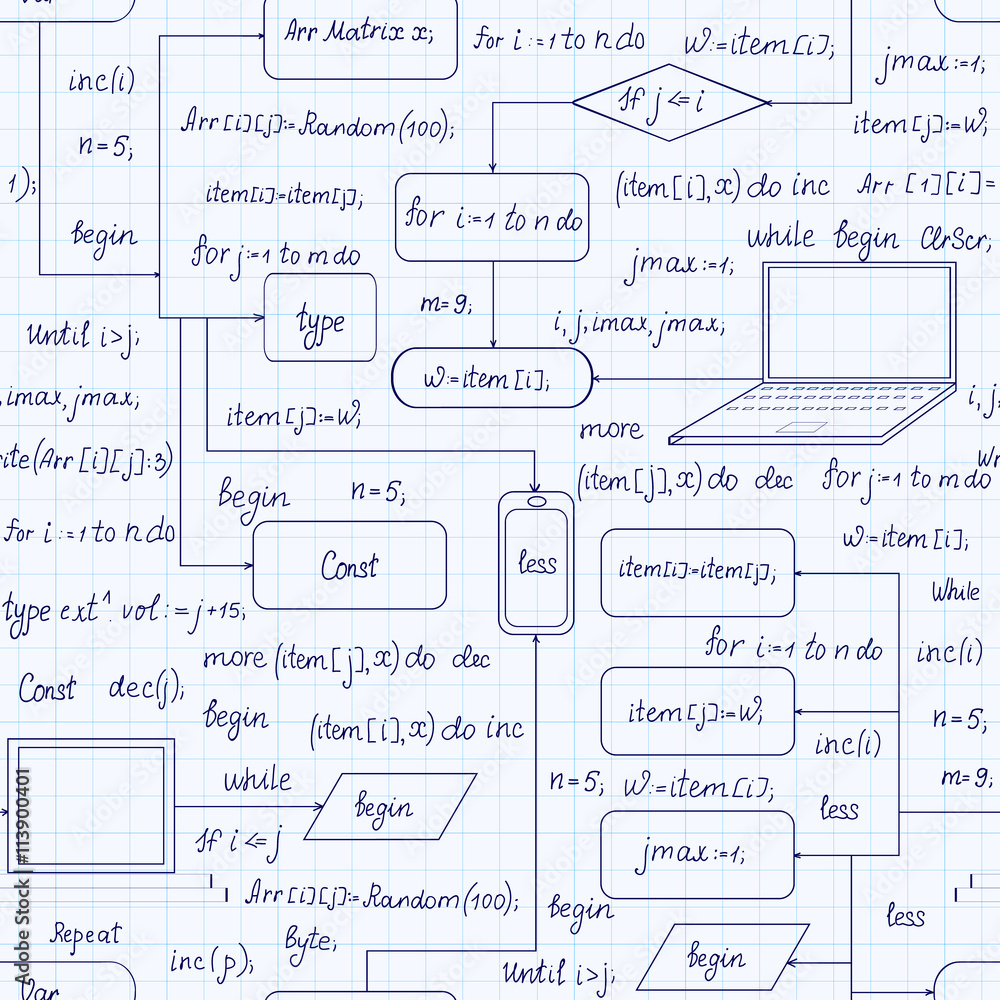 Arr Matrix x;
for i:=1 to n do
w:=item[i];
jmax:=1;
inc(i)
If j <= i
Arr[i][j]:=Random(100);
item[j]:=w;
n=5;
1);
item[i]:=item[j];
(item[i],x) do inc
Arr [1][i]=
for i:=1 to n do
begin
while begin ClrScr;
for j:=1 to m do
jmax:=1;
m=9;
type
i, j, imax, jmax;
Until i>j;
w:=item[i];
, imax, jmax;
i, j,
item[j]:=w;
more
ite(Arr[i][j]:3)
Wr
(item[j],x) do dec
for j:=1 to m do
begin
n=5;
for i:=1 to n do
w:=item[i];
Const
less
item[i]:=item[j];
while
type ext^. vol:=j+15;
for i:=1 to n do
inc(i)
more (item[j],x) do dec
Const dec(j);
begin
(item[i],x) do inc
item[j]:=w;
n=5;
inc(i)
while
n=5;
w:=item[i];
m=9;
begin
less
If i <= j
jmax:=1;
Arr[i][j]:=Random(100);
begin
less
Repeat
Byte;
inc(p);
Until i>j;
begin
Var
Adobe Stock | #113900401